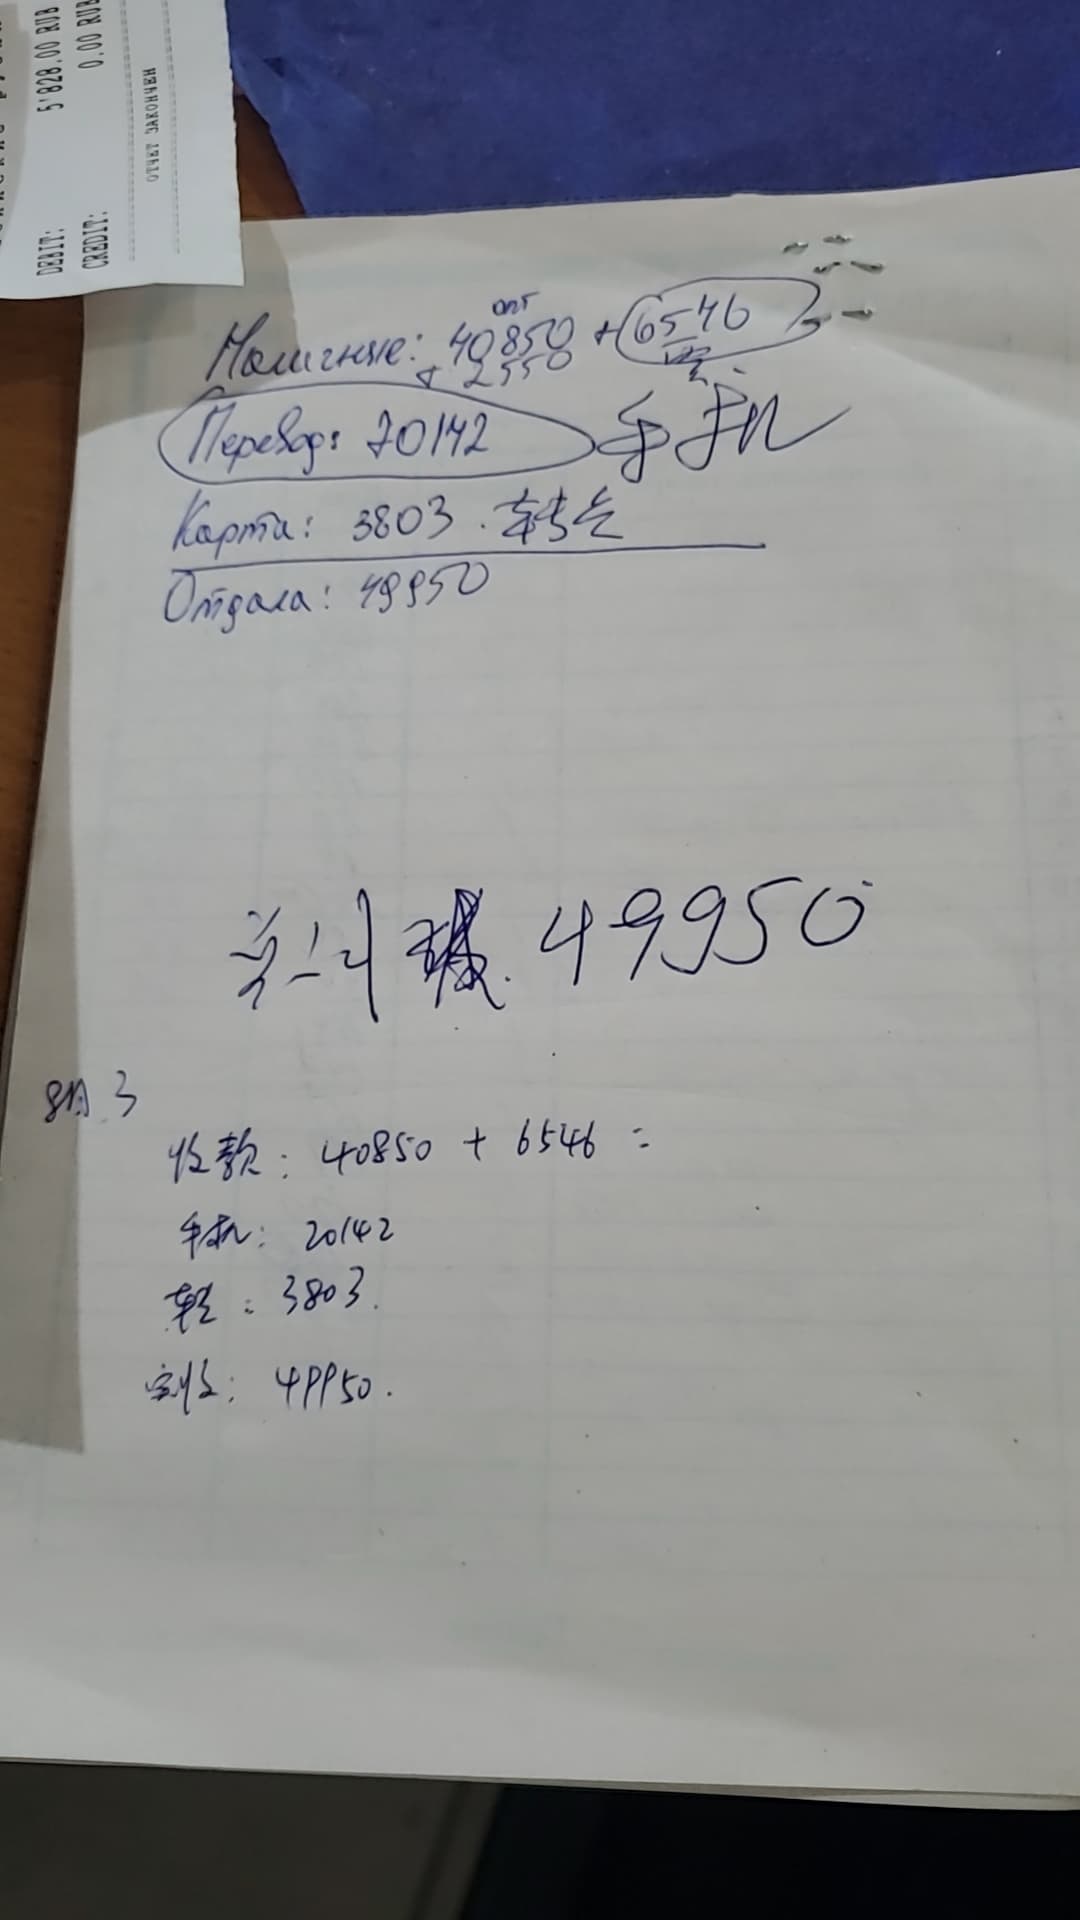 DEBIT: 5'828.00 RUB
CREDIT: 0.00 RUB
ОТЧЕТ ЗАКОНЧЕН
опт
Наличные: 40850 + 6546
+ 2550
Перевод: 20142 手机
Карта: 3803.
Отдала: 49950
49950
8月.3
收款: 40850 + 6546 =
手机: 20142
3803.
实收: 49950.